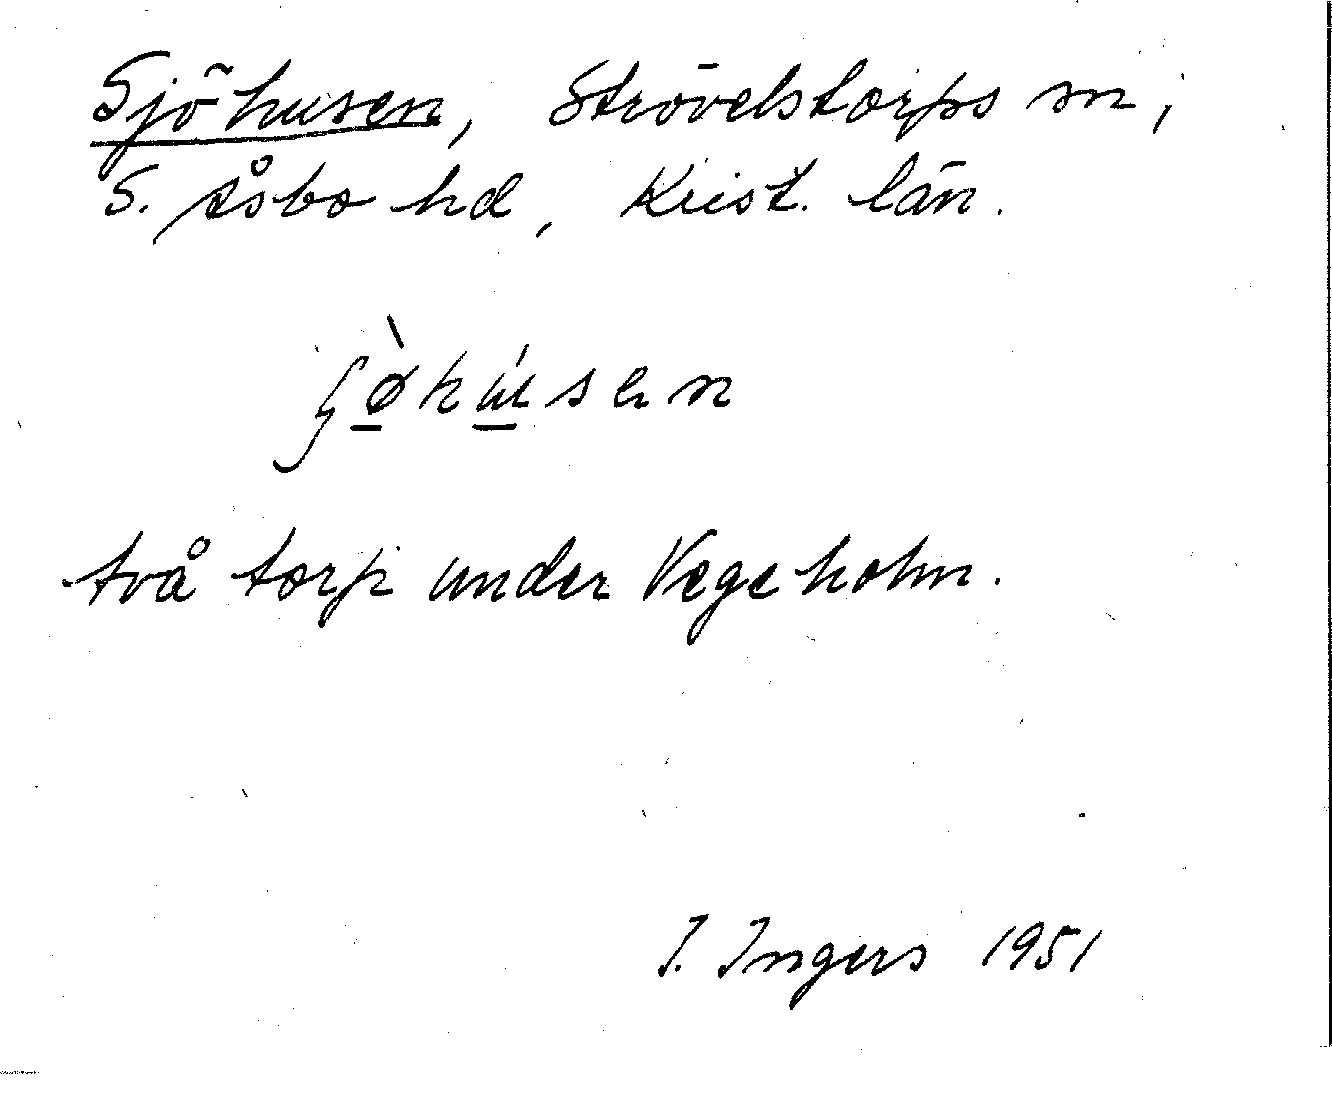 Sjöhusen, Strövelstorps sn,
S. Åsbo hd, Krist. län.
ʃø̠̀hú̠sen
två torp under Vegeholm.
I. Ingers 1951